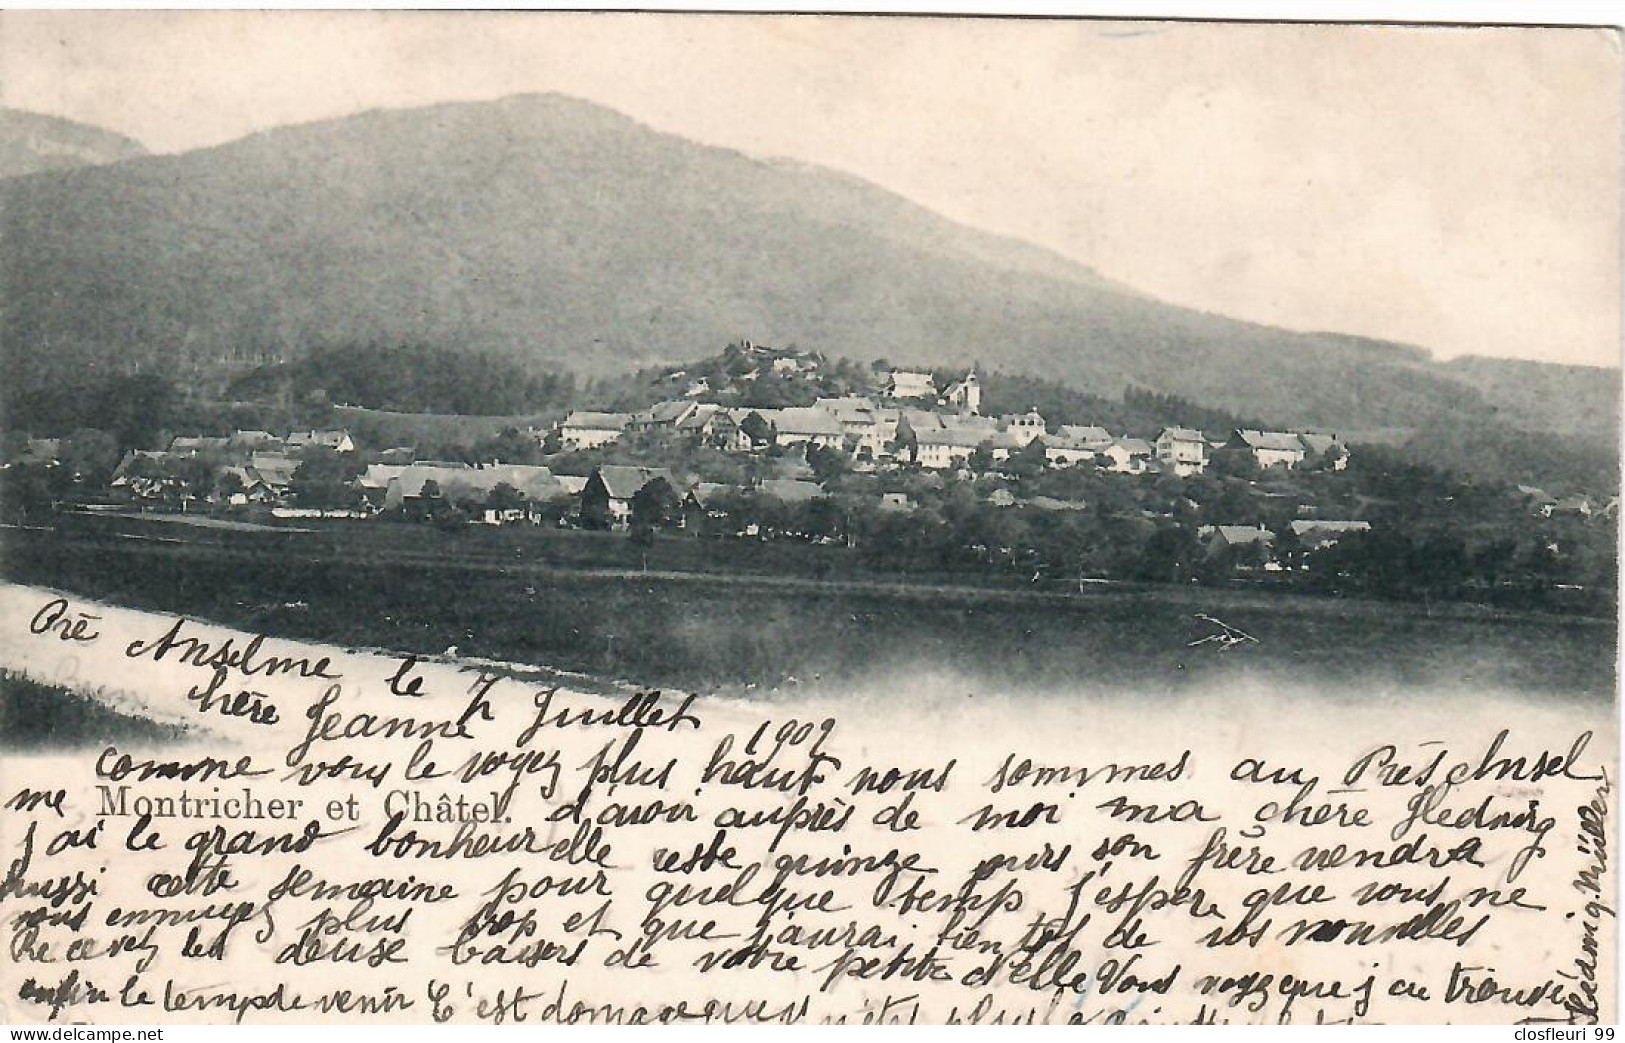 Pré Anselme le 7 Juillet 1902
chère Jeanne
comme vous le voyez plus haut nous sommes au Prés Ansel
me
Montricher et Châtel.
d'avoir auprès de moi ma chère Hedwig
j'ai le grand bonheur elle reste quinze puis son frère vendra
aussi cette semaine pour quelque temp j'espere que vous ne
vous ennuyez plus trop et que j'aurai bientôt de vos nouvelles
Recevez les deuse baisers de votre petite d'elle Vous voyez que j ai trouvé
enfin le temp de venir C'est domage que
plus
Hedwig Müller
closfleuri 99
https://www.delcampe.net